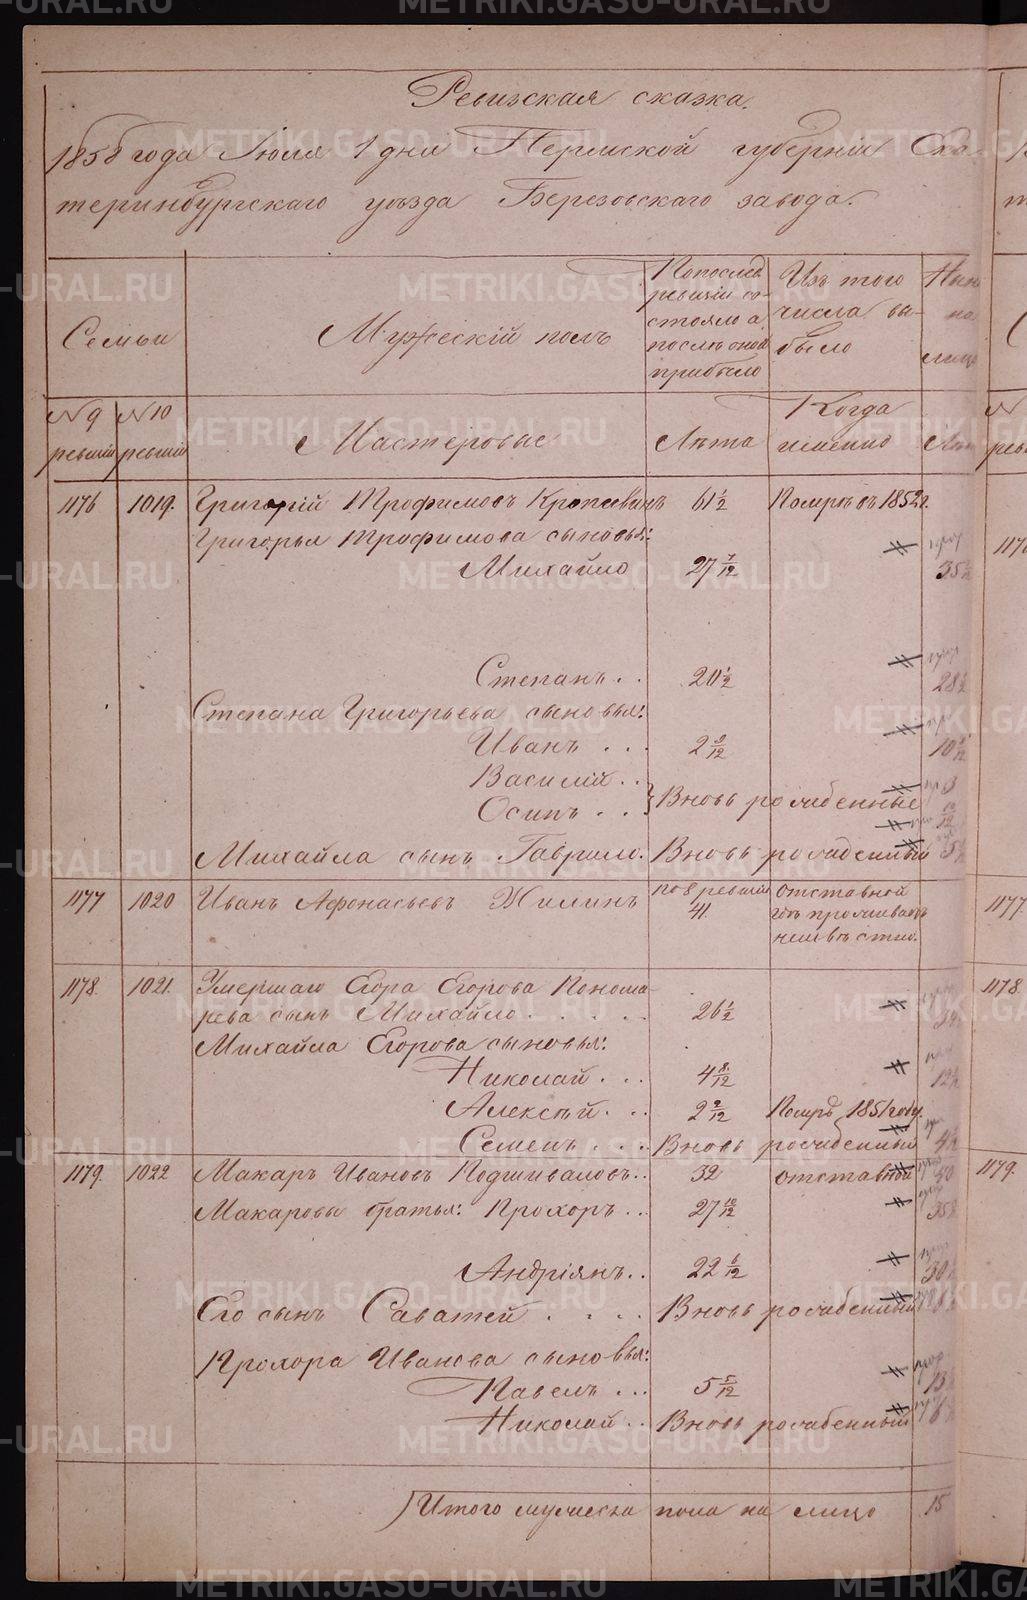 Ревизская сказка.
1858 года Июля 1 дня Пермской губернии Ека-
теринбургскаго уѣзда Березовскаго завода.
Семьи
Мужескій полъ
По послѣд.
ревизіи со-
стояло а
послѣ оной
прибыло
Изъ того
числа вы-
было
Нынѣ
на
лицо
№ 9
ревизіи
№ 10
ревизіи
Мастеровые
Лѣта
Когда
именно
Лѣта
1176 1019. Григорій Трофимовъ 61 1/2 Померъ въ 1852 г.
Григорья Трофимова сыновья:
Михайло 27 7/12 35 1/2
Степанъ . . 20 1/2 28 1/2
Степана Григорьева сыновья:
Иванъ . . . 2 9/12 10
Василій . . 3
Осипъ . . . Вновь рожденные
Михайла сынъ Гаврило. Вновь рожденный 5
1177 1020 Иванъ Афонасьевъ Жилинъ по 8 ревизіи 41. отставной
гдѣ проживаетъ
неизвѣстно.
1178. 1021. Умершаго Егора Егорова Понома-
рева сынъ Михайло . . . . . 26 1/2
Михайла Егорова сыновья:
Николай . . . 4 8/12 12
Алексѣй . . . 2 2/12 Померъ 1851 году.
Семенъ . . . . Вновь рожденный 4 1/2
1179. 1022 Макаръ Ивановъ Подшиваловъ . . 32 отставной 40
Макаровы братья: Прохоръ . . 27 10/12 35
Андріянъ . . 22 6/12 30
Его сынъ Саватей . . . . Вновь рожденный
Прохора Иванова сыновья:
Павелъ . . . 5 5/12 13
Николай . . Вновь рожденный 6
Итого мужеска пола на лицо 15
METRIKI.GASO-URAL.RU